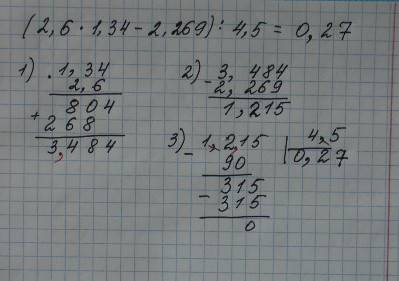 (2,6 · 1,34 - 2,269) : 4,5 = 0,27
1) . 1,34
2,6
+ 804
268
3,484
2) - 3,484
2,269
1,215
3) - 1,2,15 | 4,5
90 0,27
315
- 315
0